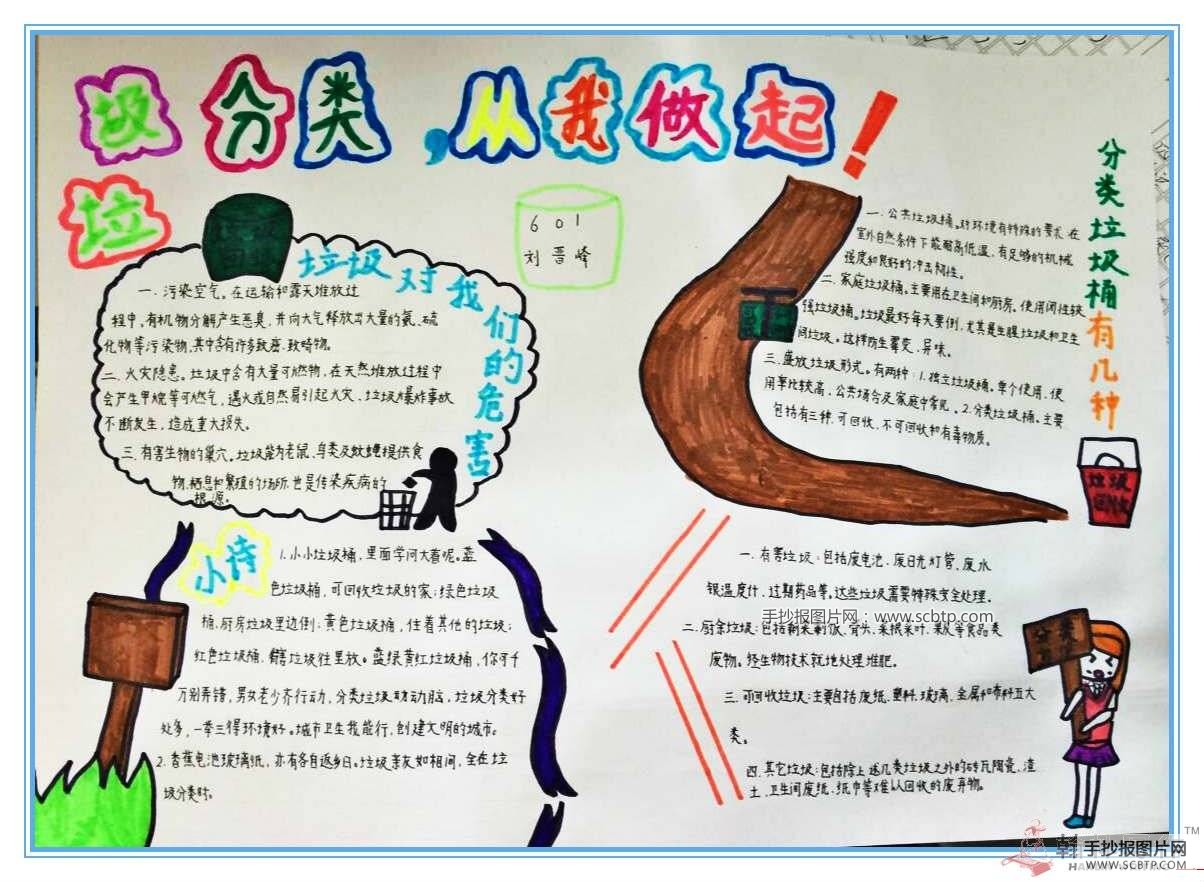 垃圾分类,从我做起!
601
刘晋峰
垃圾对我们的危害
一、污染空气。在运输和露天堆放过
程中,有机物分解产生恶臭,并向大气释放出大量的氨、硫
化物等污染物,其中含有许多致癌、致畸物。
二、火灾隐患。垃圾中含有大量可燃物,在天然堆放过程中
会产生甲烷等可燃气,遇火或自然易引起火灾、垃圾爆炸事故
不断发生,造成重大损失。
三、有害生物的巢穴。垃圾能为老鼠、鸟类及蚊蝇提供食
物、栖息和繁殖的场所,也是传染疾病的
根源。
分类垃圾桶有几种
一、公共垃圾桶。对环境有特殊的要求,在
室外自然条件下能耐高低温,有足够的机械
强度和良好的冲击韧性。
二、家庭垃圾桶。主要用在卫生间和厨房。使用闭性较
强垃圾桶。垃圾最好每天要倒,尤其是生腥垃圾和卫生
间垃圾。这样防生霉变、异味。
三、盛放垃圾形式。有两种:1.独立垃圾桶。单个使用,使
用率比较高,公共场合及家庭中常见。2.分类垃圾桶。主要
包括有三种,可回收、不可回收和有毒物质。
垃圾
回收
小诗
1.小小垃圾桶,里面学问大着呢。蓝
色垃圾桶,可回收垃圾的家;绿色垃圾
桶,厨房垃圾里边倒;黄色垃圾桶,住着其他的垃圾;
红色垃圾桶,有害垃圾往里放。蓝绿黄红垃圾桶,你可千
万别弄错,男女老少齐行动,分类垃圾动动脑,垃圾分类好
处多,一举三得环境好。城市卫生我能行,创建文明的城市。
2.香蕉电池玻璃纸,亦有各自返乡日。垃圾亲友如相问,全在垃
圾分类时。
一、有害垃圾:包括废电池、废日光灯管、废水
银温度计、过期药品等,这些垃圾需要特殊安全处理。
手抄报图片网:www.scbtp.com
二、厨余垃圾:包括剩菜剩饭、骨头、菜根菜叶、果皮等食品类
废物。经生物技术就地处理堆肥。
三、可回收垃圾:主要包括废纸、塑料、玻璃、金属和布料五大
类。
四、其它垃圾:包括除上述几类垃圾之外的砖瓦陶瓷、渣
土、卫生间废纸、纸巾等难以回收的废弃物。
分类
手抄报图片网
WWW.SCBTP.COM
TM